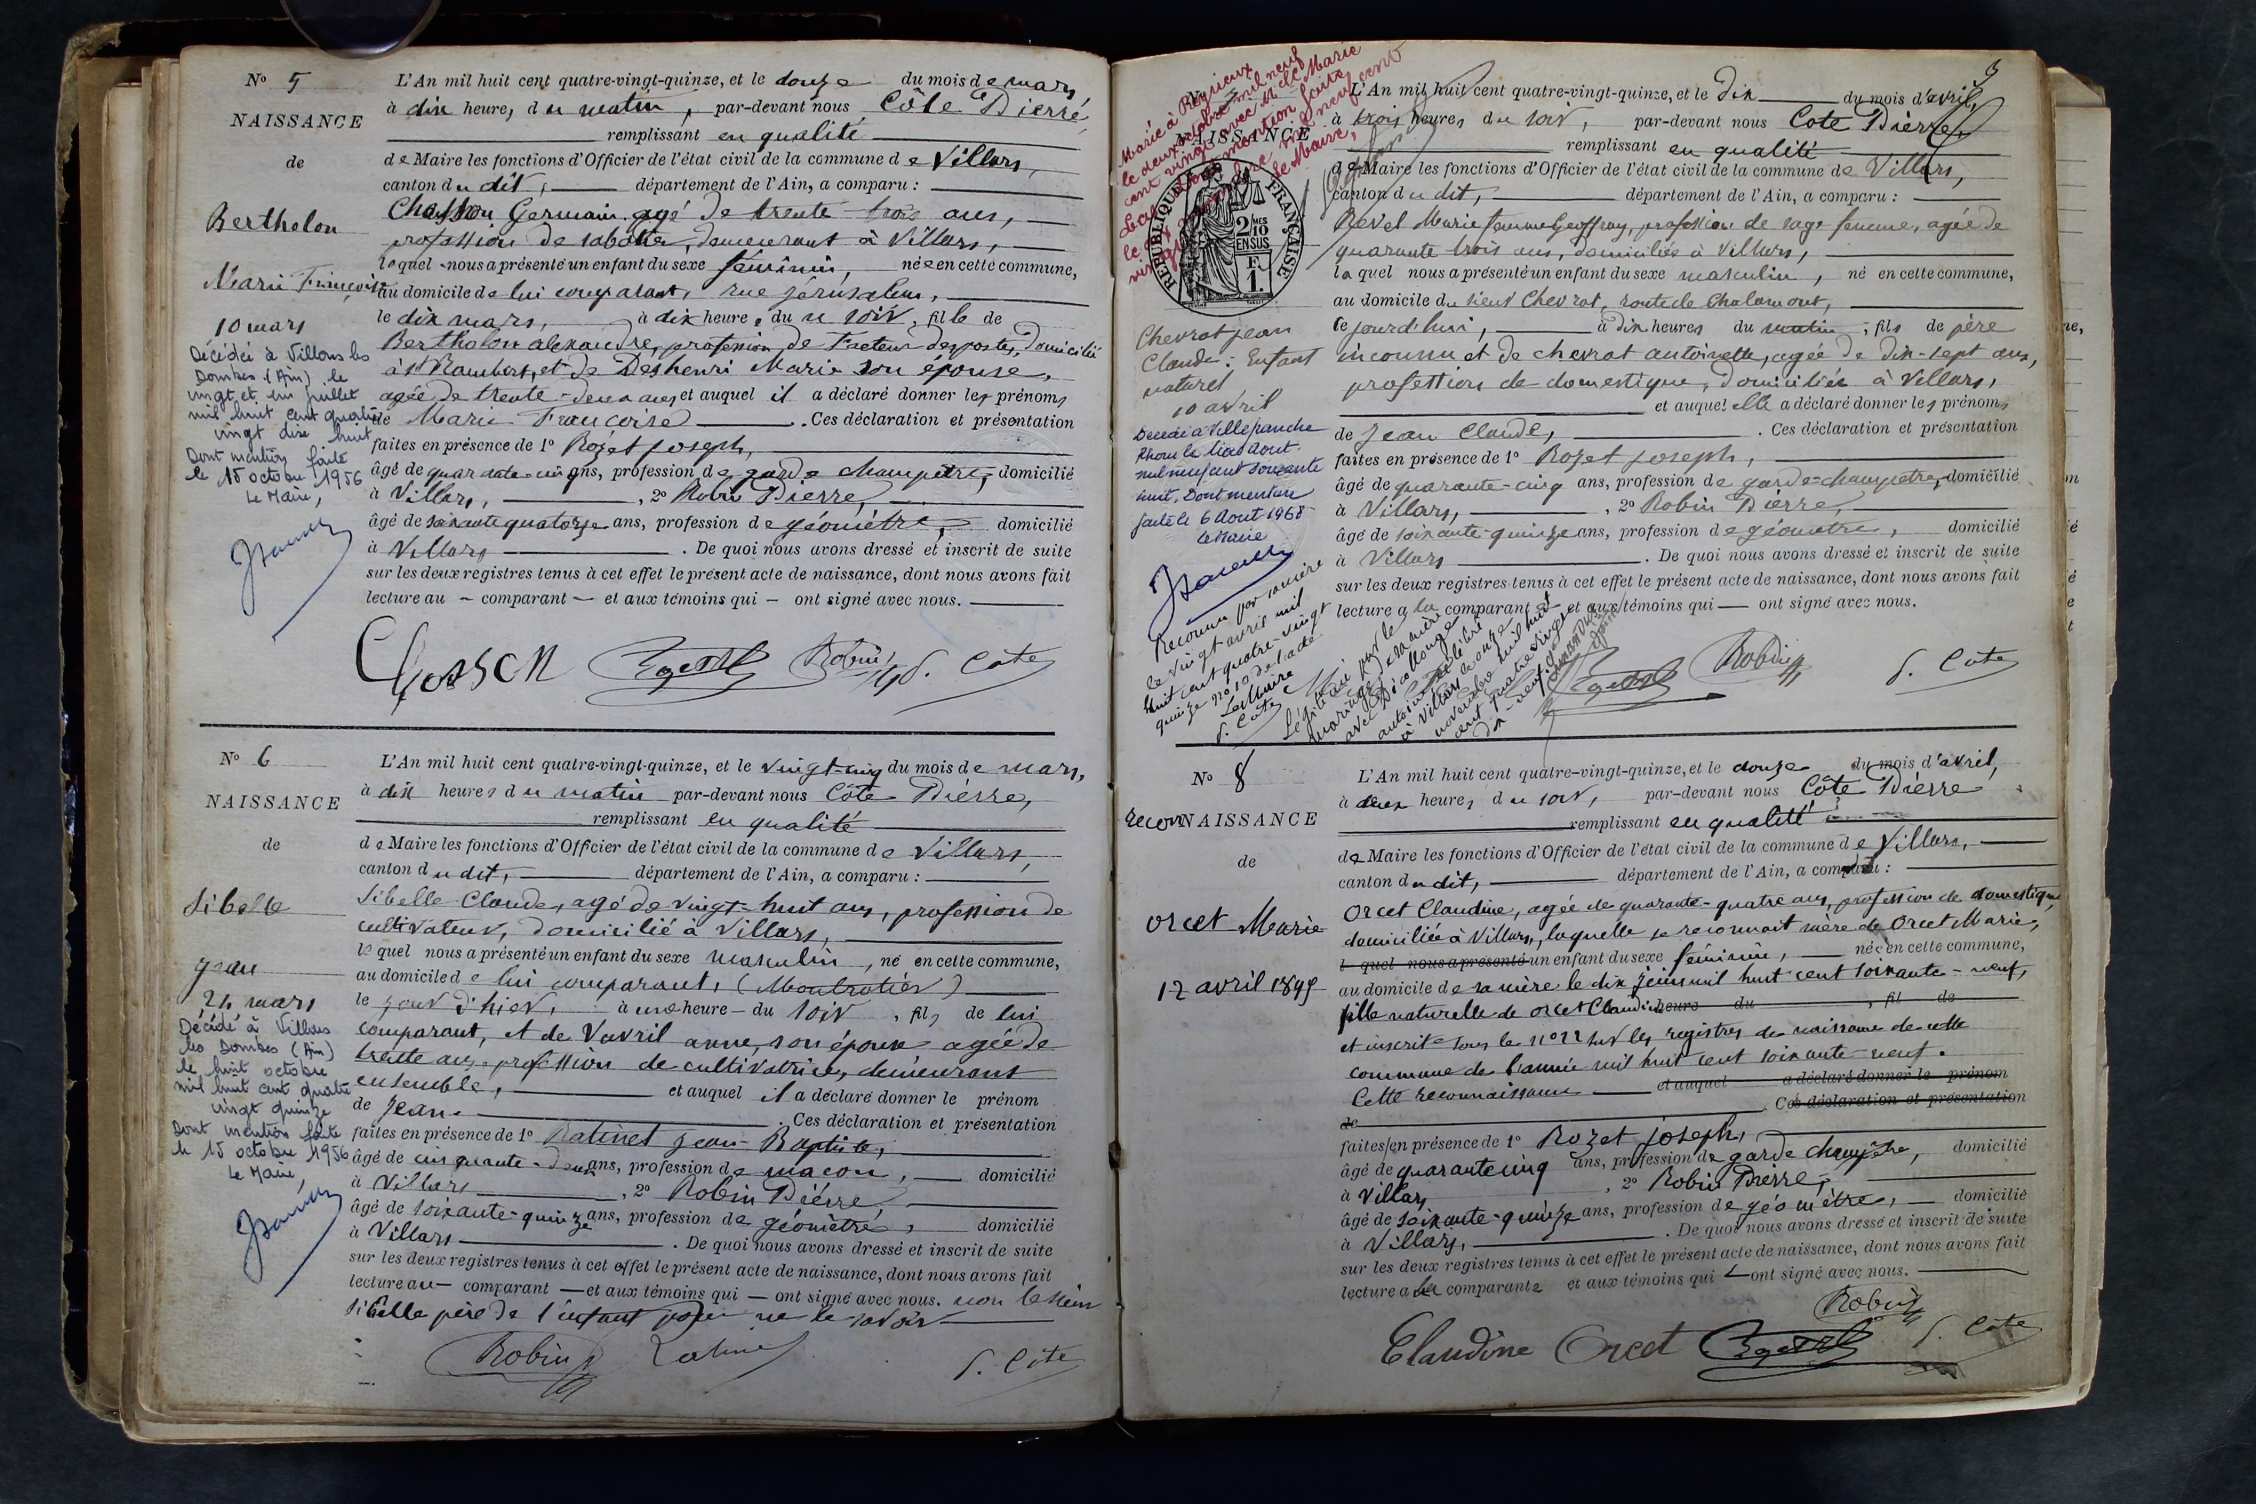 N° 5
NAISSANCE
de
Berthelon
Marie Françoise
10 mars
Décédée à Villars les
Dombes (Ain) le
vingt et un juillet
mil huit cent quatre
vingt dix huit
Dont mention faite
le 15 octobre 1956
Le Maire,
L'An mil huit cent quatre-vingt-quinze, et le douze du mois de mars
à dix heures, du matin, par-devant nous Côte Pierre,
remplissant en qualité
de Maire les fonctions d'Officier de l'état civil de la commune de Villars,
canton du dit, département de l'Ain, a comparu :
Germain, agé de trente-trois ans,
profession de sabotier, demeurant à Villars,
lequel nous a présenté un enfant du sexe féminin, née en cette commune,
au domicile de lui comparant, rue Jérusalem,
le dix mars, à dix heures du soir, fille de
Berthelon alexandre, profession de Facteur des postes, Domicilié
à St Rambert, et de Deshenri Marie son épouse,
agée de trente-deux ans et auquel il a déclaré donner les prénoms
de Marie Françoise. Ces déclaration et présentation
faites en présence de 1° Rozet joseph,
âgé de quarante cinq ans, profession de garde champêtre, domicilié
à Villars, 2° Robin Pierre,
âgé de soixante quatorze ans, profession de géomètre, domicilié
à Villars. De quoi nous avons dressé et inscrit de suite
sur les deux registres tenus à cet effet le présent acte de naissance, dont nous avons fait
lecture au – comparant – et aux témoins qui – ont signé avec nous.
Robin P. Côte
N° 6
NAISSANCE
de
Sibelle
Jean
24 mars
Décédé à Villars
les Dombes (Ain)
le huit octobre
mil huit cent quatre
vingt quinze
Dont mention faite
le 15 octobre 1956
Le Maire,
L'An mil huit cent quatre-vingt-quinze, et le vingt-cinq du mois de mars,
à dix heures du matin par-devant nous Côte Pierre,
remplissant en qualité
de Maire les fonctions d'Officier de l'état civil de la commune de Villars,
canton du dit, département de l'Ain, a comparu :
Sibelle Claude, agé de vingt-huit ans, profession de
cultivateur, domicilié à Villars,
lequel nous a présenté un enfant du sexe masculin, né en cette commune,
au domicile de lui comparant, (Montrotier)
le jour d'hier, à une heure – du soir, fils de lui
comparant, et de Vavril anne, son épouse agée de
trente ans, profession de cultivatrice, demeurant
ensemble, et auquel il a déclaré donner le prénom
de Jean. Ces déclaration et présentation
faites en présence de 1° Ratinet Jean-Baptiste,
âgé de cinquante-deux ans, profession de maçon, domicilié
à Villars, 2° Robin Pierre,
âgé de soixante-quinze ans, profession de géomètre, domicilié
à Villars. De quoi nous avons dressé et inscrit de suite
sur les deux registres tenus à cet effet le présent acte de naissance, dont nous avons fait
lecture au – comparant – et aux témoins qui – ont signé avec nous. non le sieur
Sibelle père de l'enfant pour ne le savoir
Robin Ratinet P. Côte
3
Marié à Régnieux
le deux octobre mil neuf
cent vingt avec Melle Marie
NAISSANCE
le Maire,
RÉPUBLIQUE FRANÇAISE
2 MES
10
EN SUS
F.
1.
Chevrat jean
Claude: Enfant
naturel
10 avril
Décédé à Villefranche
Rhône le trois août
mil neuf cent soixante
huit. Dont mention
faite le 6 Aout 1968
Le Maire
Reconnu par sa mère
le vingt avril mil
huit cent quatre-vingt
quinze n° 10 de l'acte
Le Maire
P. Côte
L'An mil huit cent quatre-vingt-quinze, et le dix du mois d'avril,
à trois heures du soir, par-devant nous Cote Pierre,
remplissant en qualité
de Maire les fonctions d'Officier de l'état civil de la commune de Villars,
canton du dit, département de l'Ain, a comparu :
Revel Marie femme Geoffray, profession de sage femme, agée de
quarante trois ans, domiciliée à Villars,
laquel nous a présenté un enfant du sexe masculin, né en cette commune,
au domicile du sieur Chevrat, route de Chalamont,
ce jourd'hui, à dix heures du matin, fils de père
inconnu et de chevrat antoinette, agée de dix-sept ans,
profession de domestique, domiciliée à Villars,
et auquel elle a déclaré donner les prénoms
de Jean Claude, . Ces déclaration et présentation
faites en présence de 1° Rozet Joseph,
âgé de quarante-cinq ans, profession de garde-champetre, domicilié
à Villars, 2° Robin Pierre,
âgé de soixante-quinze ans, profession de géometre, domicilié
à Villars. De quoi nous avons dressé et inscrit de suite
sur les deux registres tenus à cet effet le présent acte de naissance, dont nous avons fait
lecture a la comparante et aux témoins qui – ont signé avec nous.
Robin P. Côte
N° 8
recon NAISSANCE
de
Orcet Marie
12 avril 1895
L'An mil huit cent quatre-vingt-quinze, et le douze du mois d'avril,
à deux heures du soir, par-devant nous Côte Pierre
remplissant en qualité
de Maire les fonctions d'Officier de l'état civil de la commune de Villars,
canton du dit, département de l'Ain, a comparu :
Orcet Claudine, agée de quarante-quatre ans, profession de domestique,
domiciliée à Villars, laquelle se reconnait mère de Orcet Marie,
l quel nous a présenté un enfant du sexe féminin, née en cette commune,
au domicile de sa mère le dix juin mil huit cent soixante-neuf,
fille naturelle de Orcet Claudine heure du , fil de
et inscrite sous le n° 22 sur les registres de naissance de cette
commune de l'année mil huit cent soixante-neuf.
Cette reconnaissance et auquel a déclaré donner le prénom
de . Ces déclaration et présentation
faites en présence de 1° Rozet joseph,
âgé de quarante cinq ans, profession de garde champêtre, domicilié
à Villars, 2° Robin Pierre,
âgé de soixante-quinze ans, profession de géomètre, domicilié
à Villars, . De quoi nous avons dressé et inscrit de suite
sur les deux registres tenus à cet effet le présent acte de naissance, dont nous avons fait
lecture a la comparante et aux témoins qui – ont signé avec nous.
Robin
Claudine Orcet P. Côte